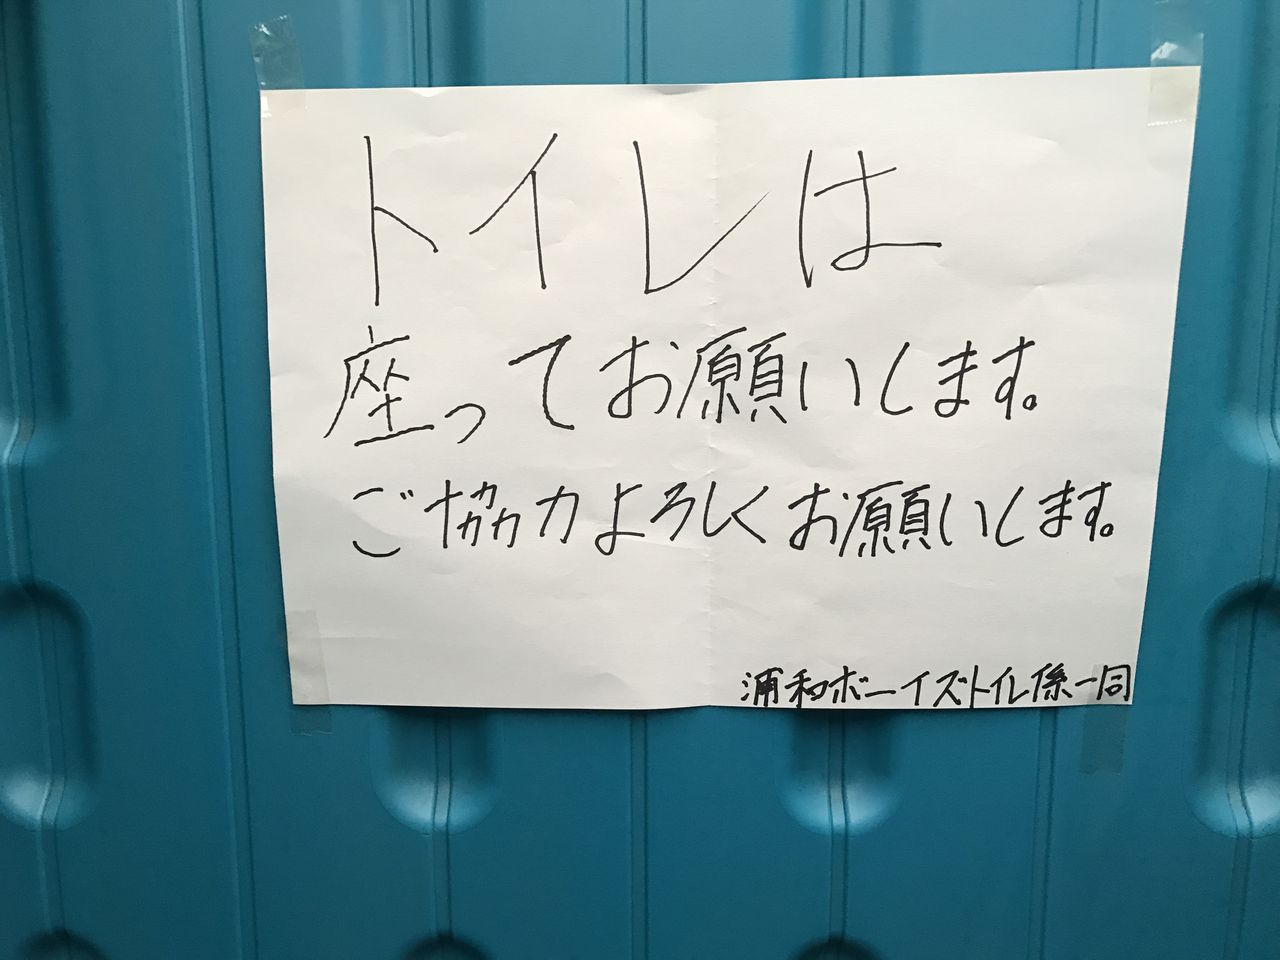 トイレは
座ってお願いします。
ご協力よろしくお願いします。
浦和ボーイズトイレ係一同